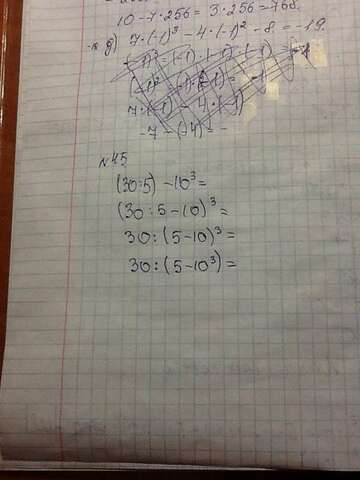 10-7·256=3·256=768.
д) 7·(-1)³-4·(-1)²-8=-19.
7·(-1) - 4·(-1)
-7-(-4)=-
№45
(30:5)-10³=
(30:5-10)³=
30:(5-10)³=
30:(5-10³)=